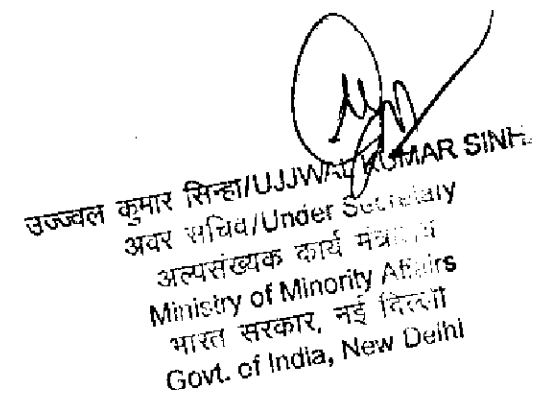 उज्ज्वल कुमार सिन्हा/UJJWAL KUMAR SINH
अवर सचिव/Under Secretary
अल्पसंख्यक कार्य मंत्रालय
Ministry of Minority Affairs
भारत सरकार, नई दिल्ली
Govt. of India, New Delhi